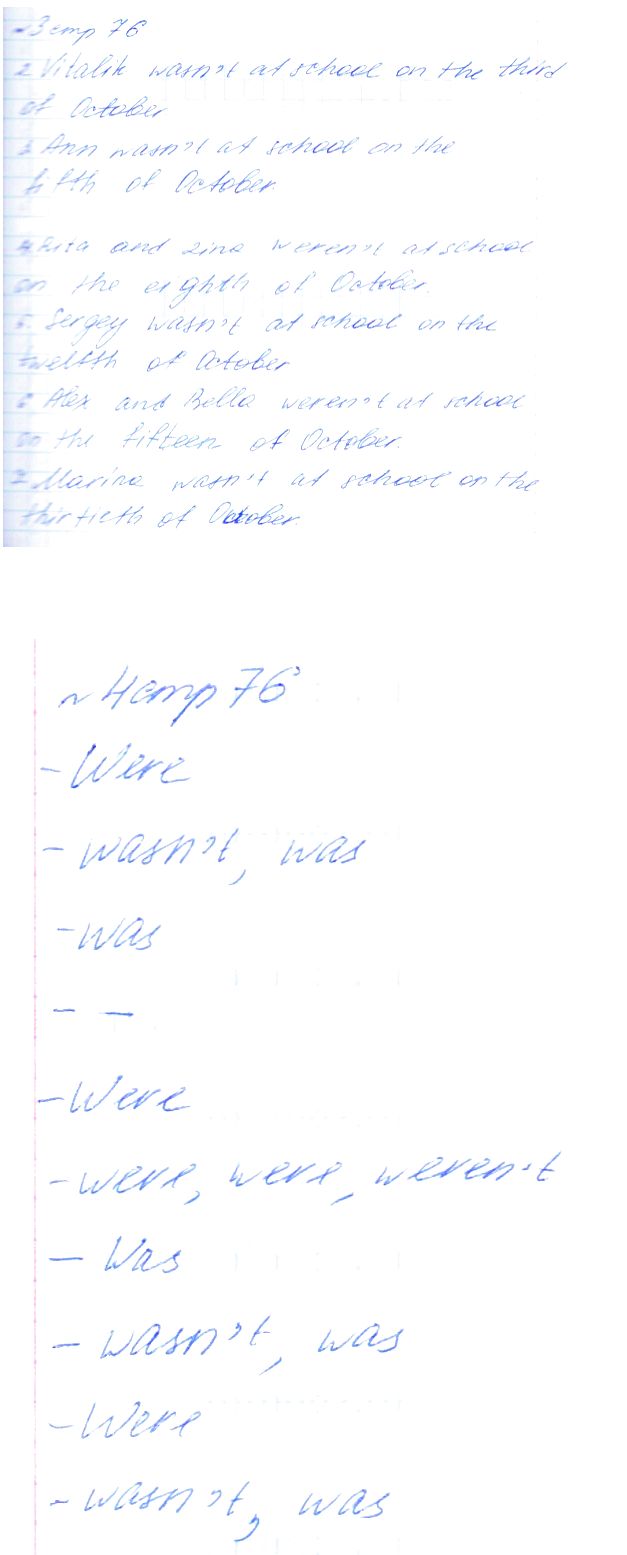 №3 стр 76
2 Vitalik wasn't at school on the third
of October
3 Ann wasn't at school on the
fifth of October.
4 Rita and Zina weren't at school
on the eighth of October.
5. Sergey wasn't at school on the
twelfth of October
6 Alex and Bella weren't at school
on the fifteen of October.
7 Marina wasn't at school on the
thirtieth of October.
№ 4 стр 76
- Were
- wasn't, was
- was
- —
- Were
- were, were, weren't
- Was
- wasn't, was
- Were
- wasn't, was